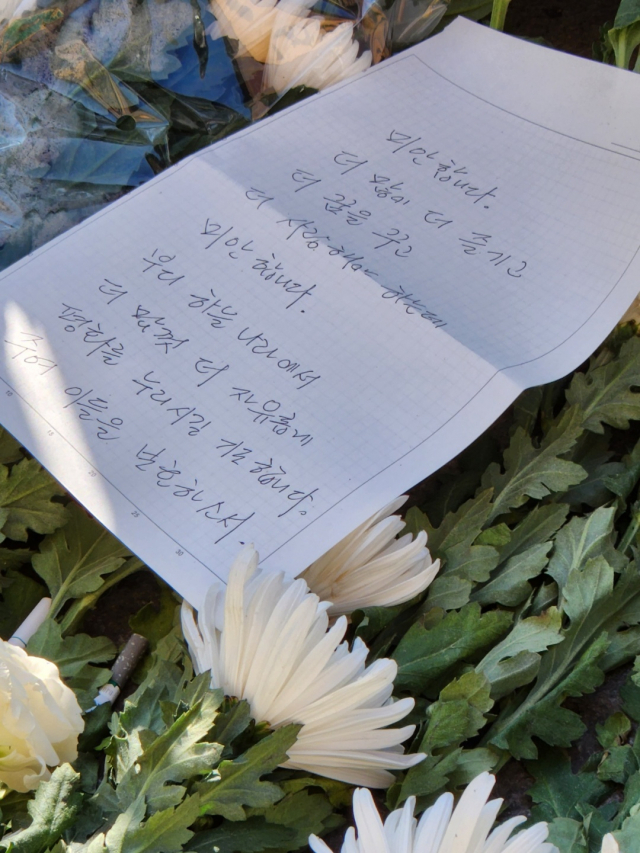 미안합니다.
더 많이 더 즐기고
더 꿈을 꾸고
더 사랑해야 하는데
미안합니다.
부디 하늘 나라에서
더 맘껏 더 자유롭게
평화를 누리시길 기도합니다.
주여 이들을 받으소서